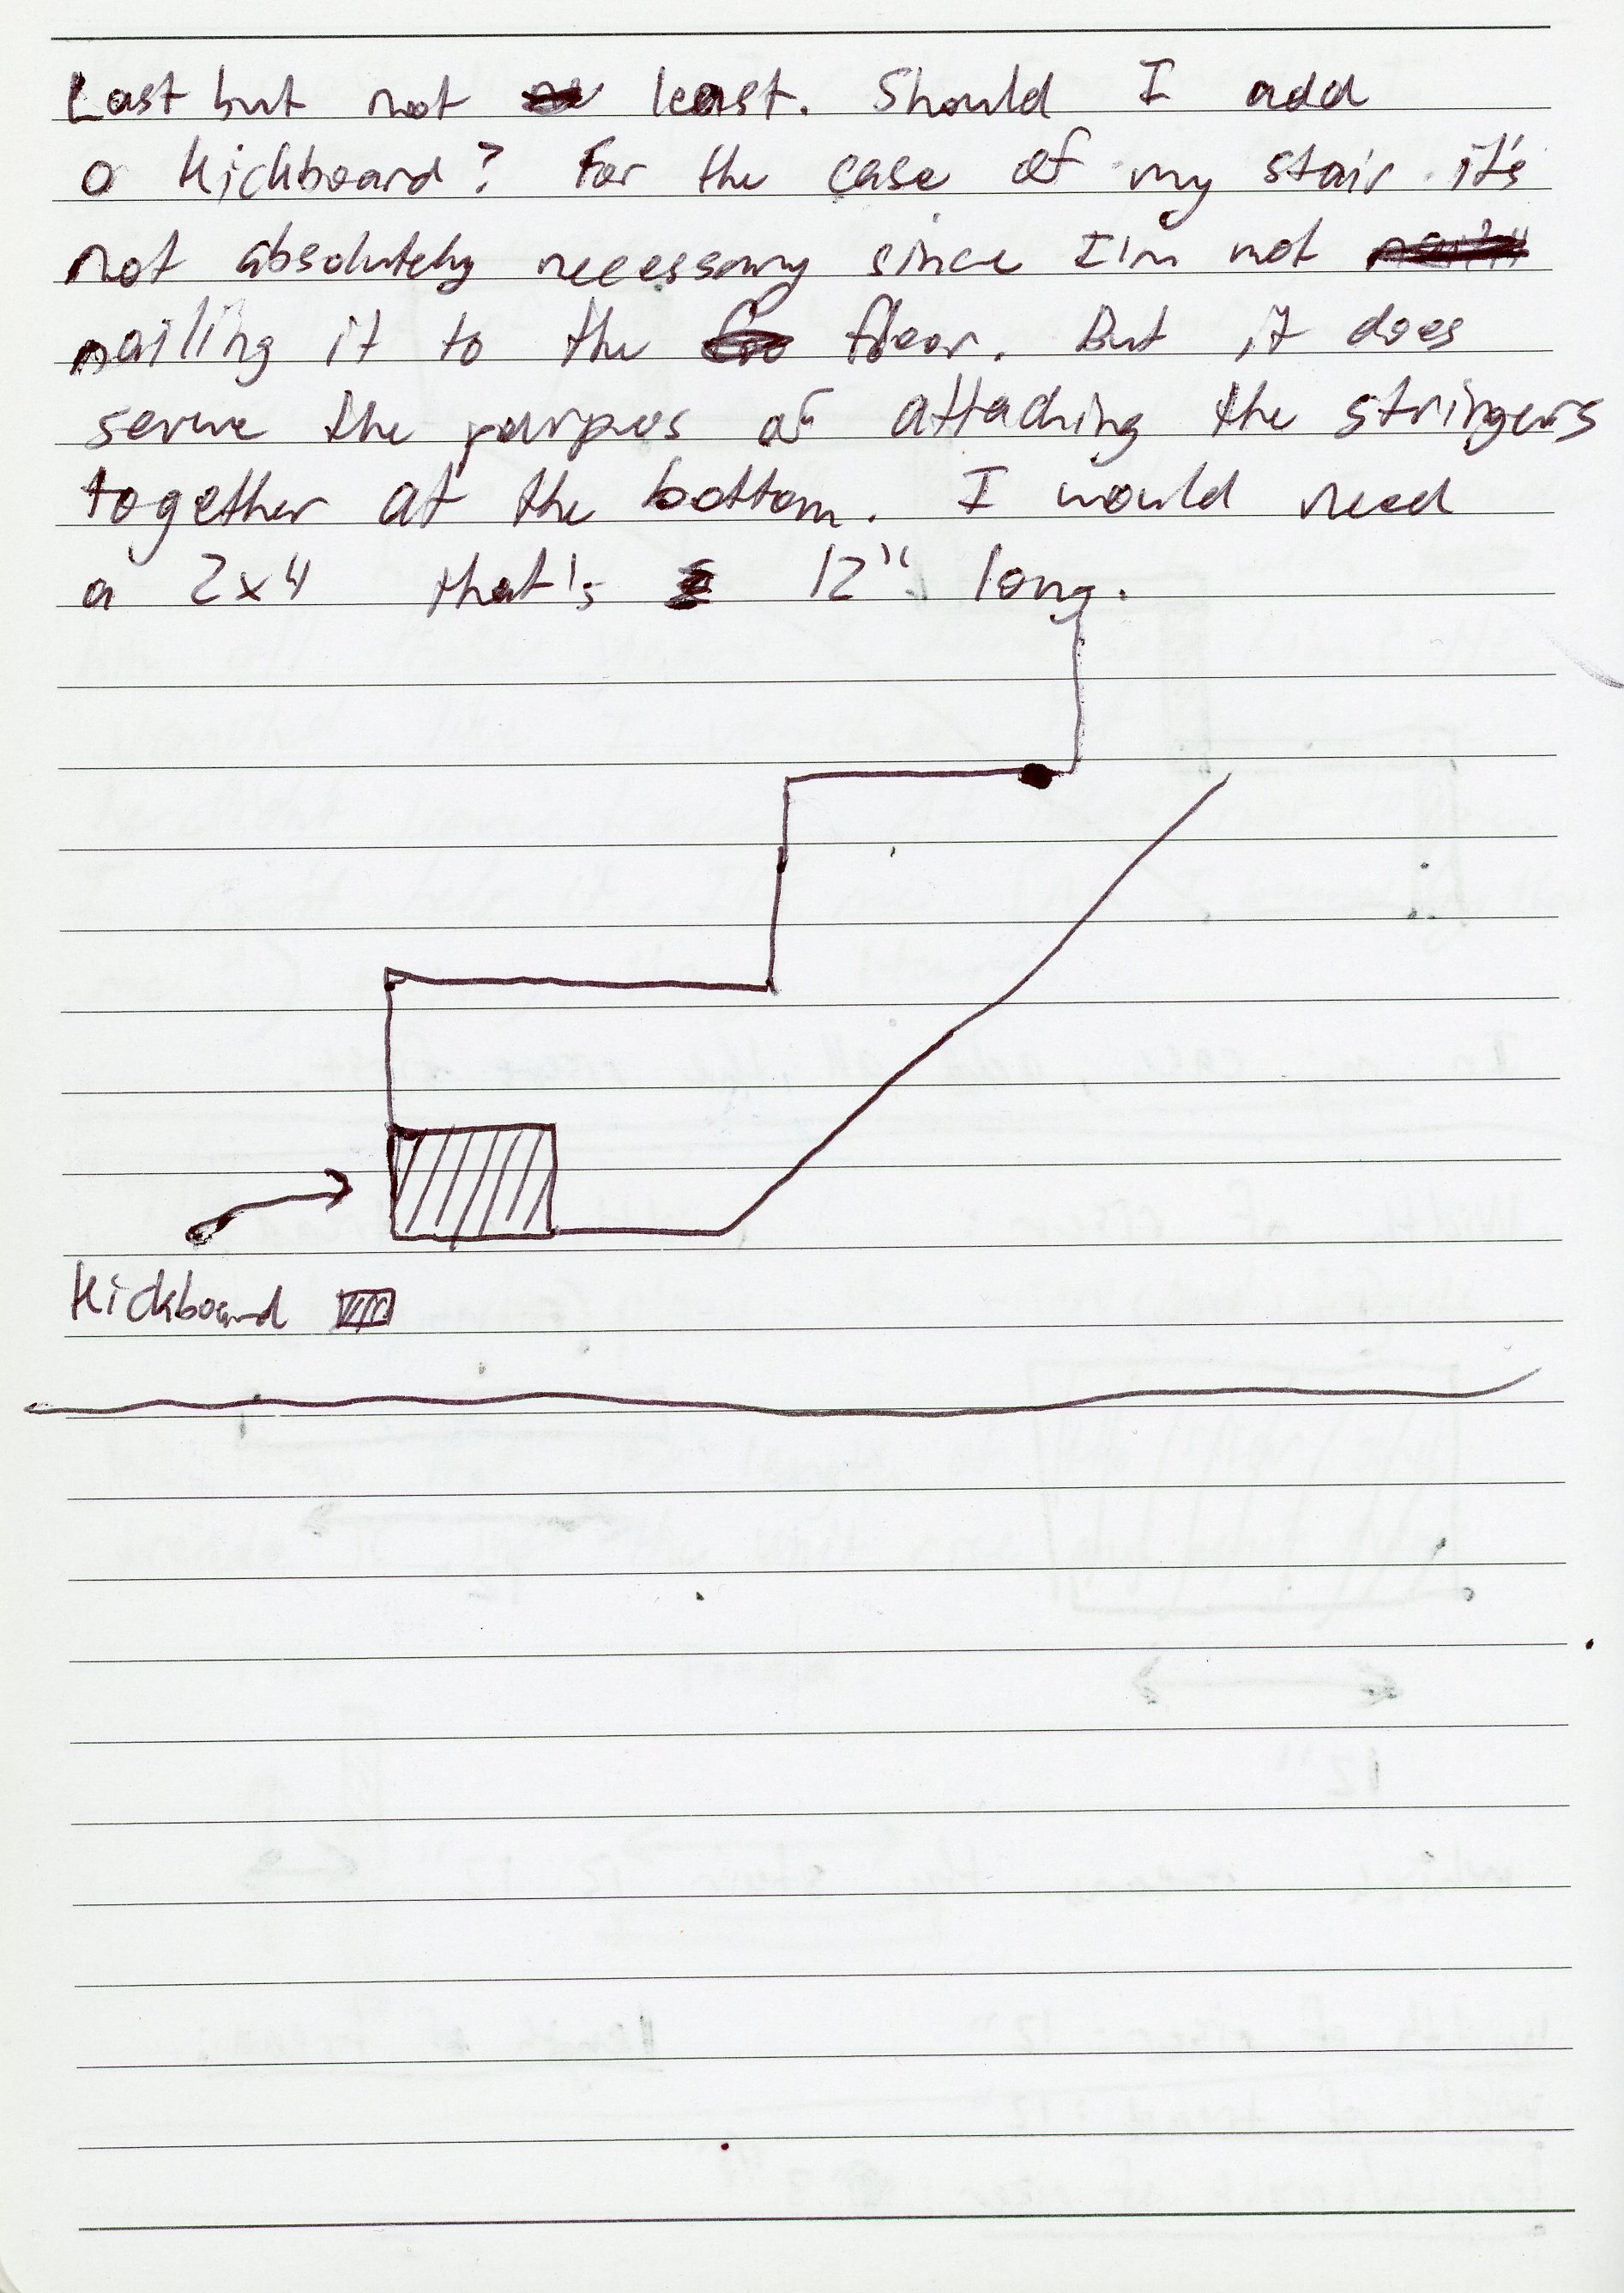 Last but not least. Should I add
a Kickboard? For the case of my stair it's
not absolutely necessary since I'm not
nailing it to the floor. But it does
serve the purpus of attaching the stringers
together at the bottom. I would need
a 2x4 that's 12" long.
Kickboard